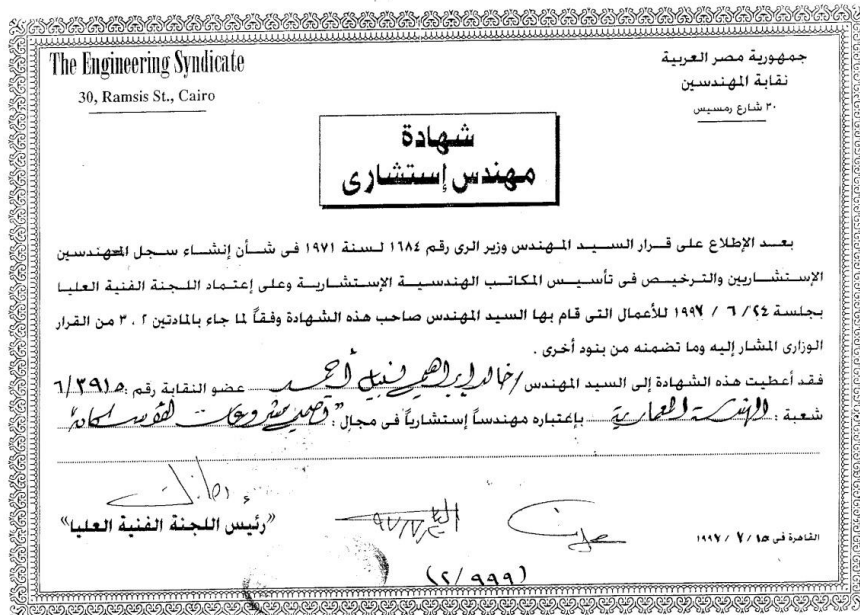 The Engineering Syndicate
30, Ramsis St., Cairo
جمهورية مصر العربية
نقابة المهندسين
٣٠ شارع رمسيس
شهادة
مهندس إستشارى
بعد الإطلاع على قرار السيد المهندس وزير الرى رقم ١٦٨٤ لسنة ١٩٧١ فى شأن إنشاء سجل المهندسين
الإستشاريين والترخيص فى تأسيس المكاتب الهندسية الإستشارية وعلى إعتماد اللجنة الفنية العليا
بجلسة ٢٤ / ٦ / ١٩٩٧ للأعمال التى قام بها السيد المهندس صاحب هذه الشهادة وفقاً لما جاء بالمادتين ٢ ، ٣ من القرار
الوزارى المشار إليه وما تضمنه من بنود أخرى .
فقد أعطيت هذه الشهادة إلى السيد المهندس / خالد إبراهيم نبيل أحمد عضو النقابة رقم : ٦/٣٩١٥
شعبة : الهندسة المعمارية بإعتباره مهندساً إستشارياً فى مجال : " تصميم مشروعات
"رئيس اللجنة الفنية العليا"
القاهرة فى ١٥ / ٧ / ١٩٩٧
(٢/٩٩٩)